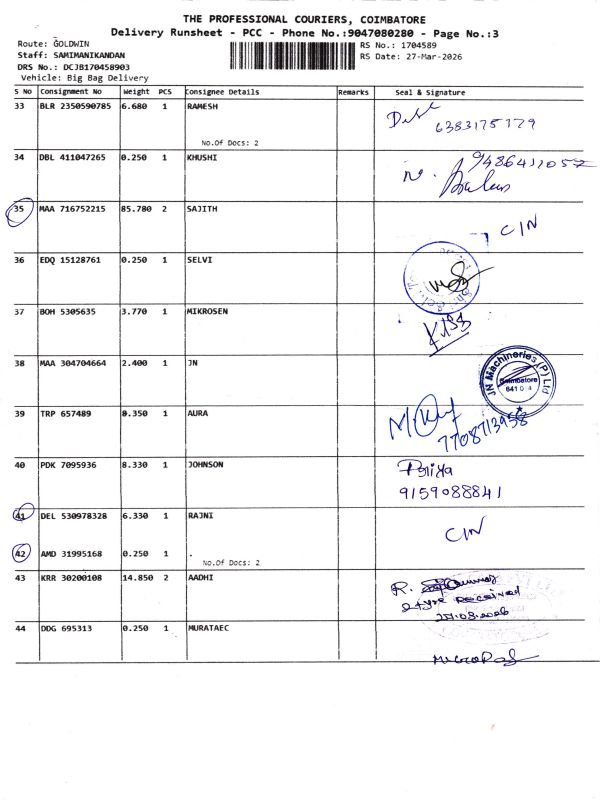 THE PROFESSIONAL COURIERS, COIMBATORE
Delivery Runsheet - PCC - Phone No.:9047080280 - Page No.:3
Route: GOLDWIN
RS No.: 1704589
Staff: SAMIMANIKANDAN
RS Date: 27-Mar-2026
DRS No.: DCJB170458903
Vehicle: Big Bag Delivery
S NO Consignment No Weight PCS Consignee Details Remarks Seal & Signature
33 BLR 2350590785 6.680 1 RAMESH
6383175779
No.Of Docs: 2
34 DBL 411047265 0.250 1 KHUSHI
9486411057
35 MAA 716752215 85.780 2 SAJITH
CIN
36 EDQ 15128761 0.250 1 SELVI
37 BOH 5305635 3.770 1 MIKROSEN
38 MAA 304704664 2.400 1 JN
JN Machineries (P) Ltd
Coimbatore
39 TRP 657489 8.350 1 AURA
7708713958
40 PDK 7095936 8.330 1 JOHNSON
9159088841
41 DEL 530978328 6.330 1 RAJNI
CIN
42 AMD 31995168 0.250 1 .
No.Of Docs: 2
43 KRR 30200108 14.850 2 AADHI
R.
received
44 DDG 695313 0.250 1 MURATAEC